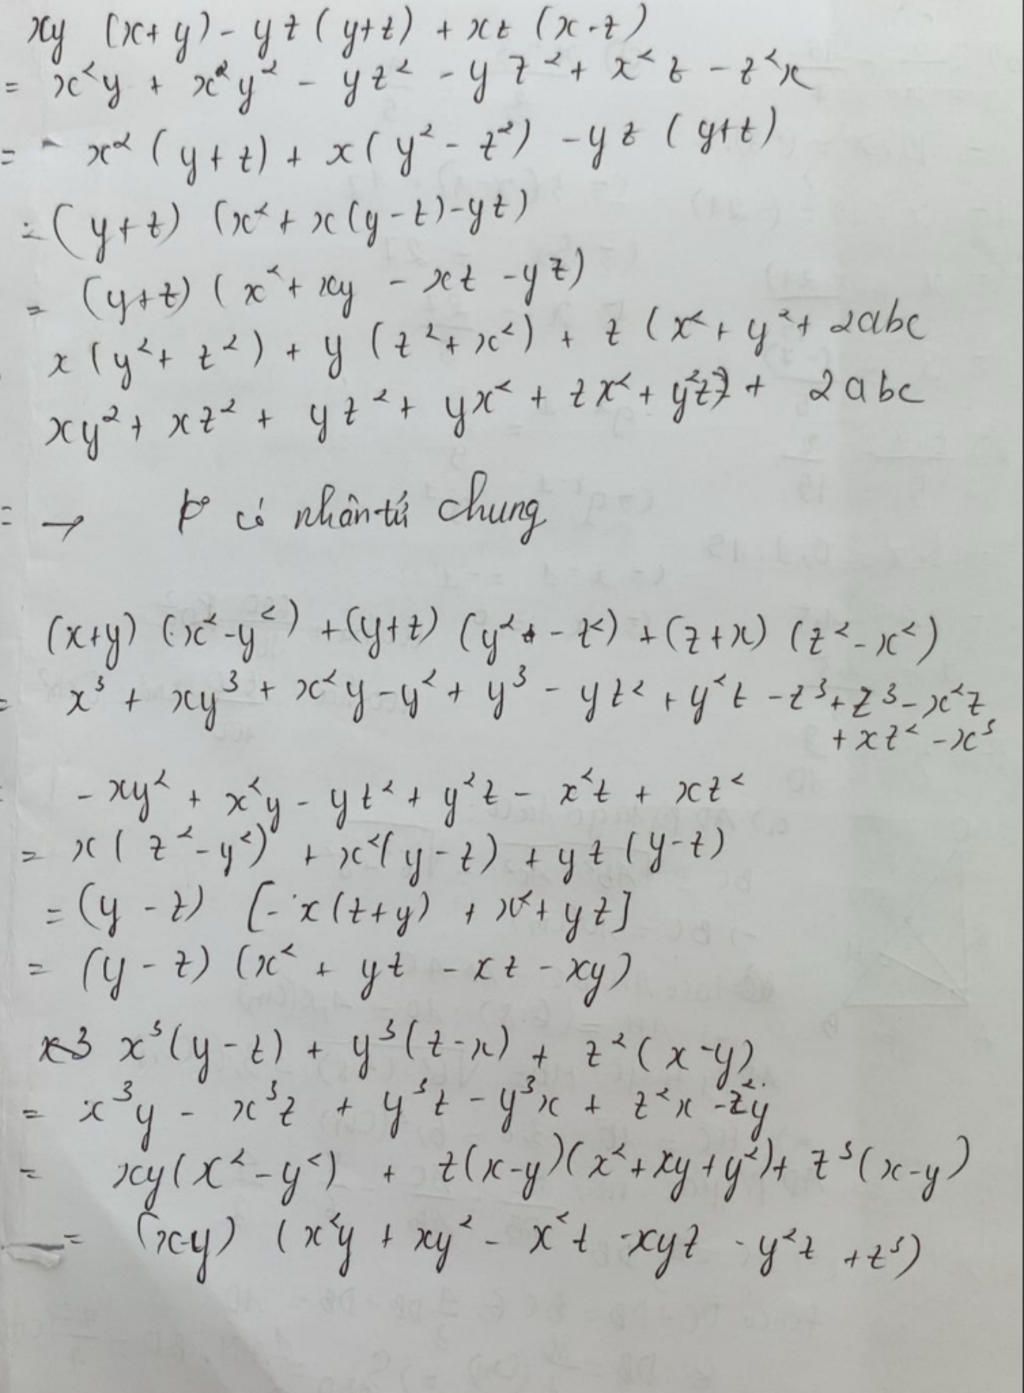 xy (x+y) - yz (y+z) + xz (x-z)
= x²y + x²y² - yz² - yz² + x²z - z²x
= - x² (y+z) + x(y² - z²) - yz (y+z)
= (y+z) (x² + x(y-z) - yz)
= (y+z) (x² + xy - xz - yz)
x (y² + z²) + y (z² + x²) + z (x² + y² + 2abc
xy² + xz² + yz² + yx² + zx² + y²z + 2abc
= → có nhân tử chung
(x+y) (x² - y²) + (y+z) (y² - z²) + (z+x) (z² - x²)
= x³ + xy³ + x²y - y² + y³ - yz² + y²z - z³ + z³ - x²z
+ xz² - x³
- xy² + x²y - yz² + y²z - x²z + xz²
= x( z² - y²) + x²(y-z) + yz (y-z)
= (y - z) [- x(z+y) + x² + yz]
= (y - z) (x² + yz - xz - xy)
x³(y-z) + y³(z-x) + z²(x-y)
= x³y - x³z + y³z - y³x + z²x - z²y
= xy(x² - y²) + z(x-y)(x²+xy+y²) + z³(x-y)
= (x-y) (x²y + xy² - x²z - xyz - y²z + z³)